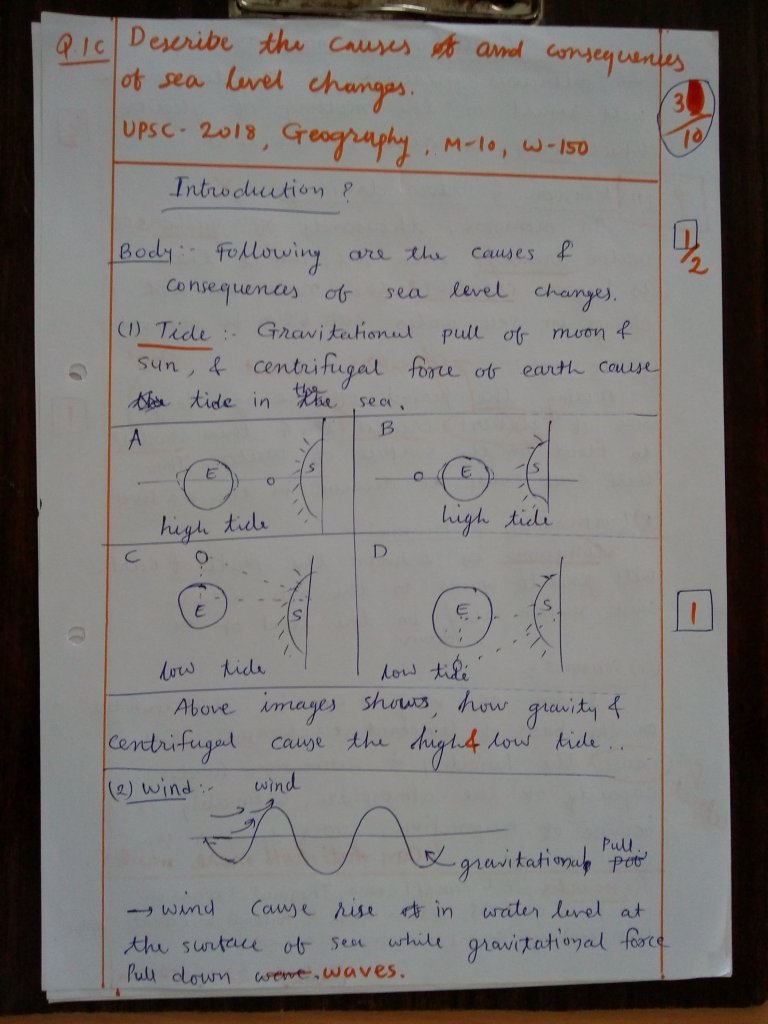 Q.1C Describe the causes of and consequences
of sea level changes.
UPSC- 2018, Geography, M-10, W-150
3
10
Introduction ?
1/2
Body:- Following are the causes &
consequences of sea level changes.
(1) Tide :- Gravitational pull of moon &
sun, & centrifugal force of earth cause
tide in the sea.
A
E
S
high tide
B
E
S
high tide
C
E
S
low tide
D
E
S
low tide
1
Above images shows, how gravity &
centrifugal cause the high & low tide..
(2) Wind :- wind
gravitational Pull
→ Wind cause rise in water level at
the surface of sea while gravitational force
Pull down waves.